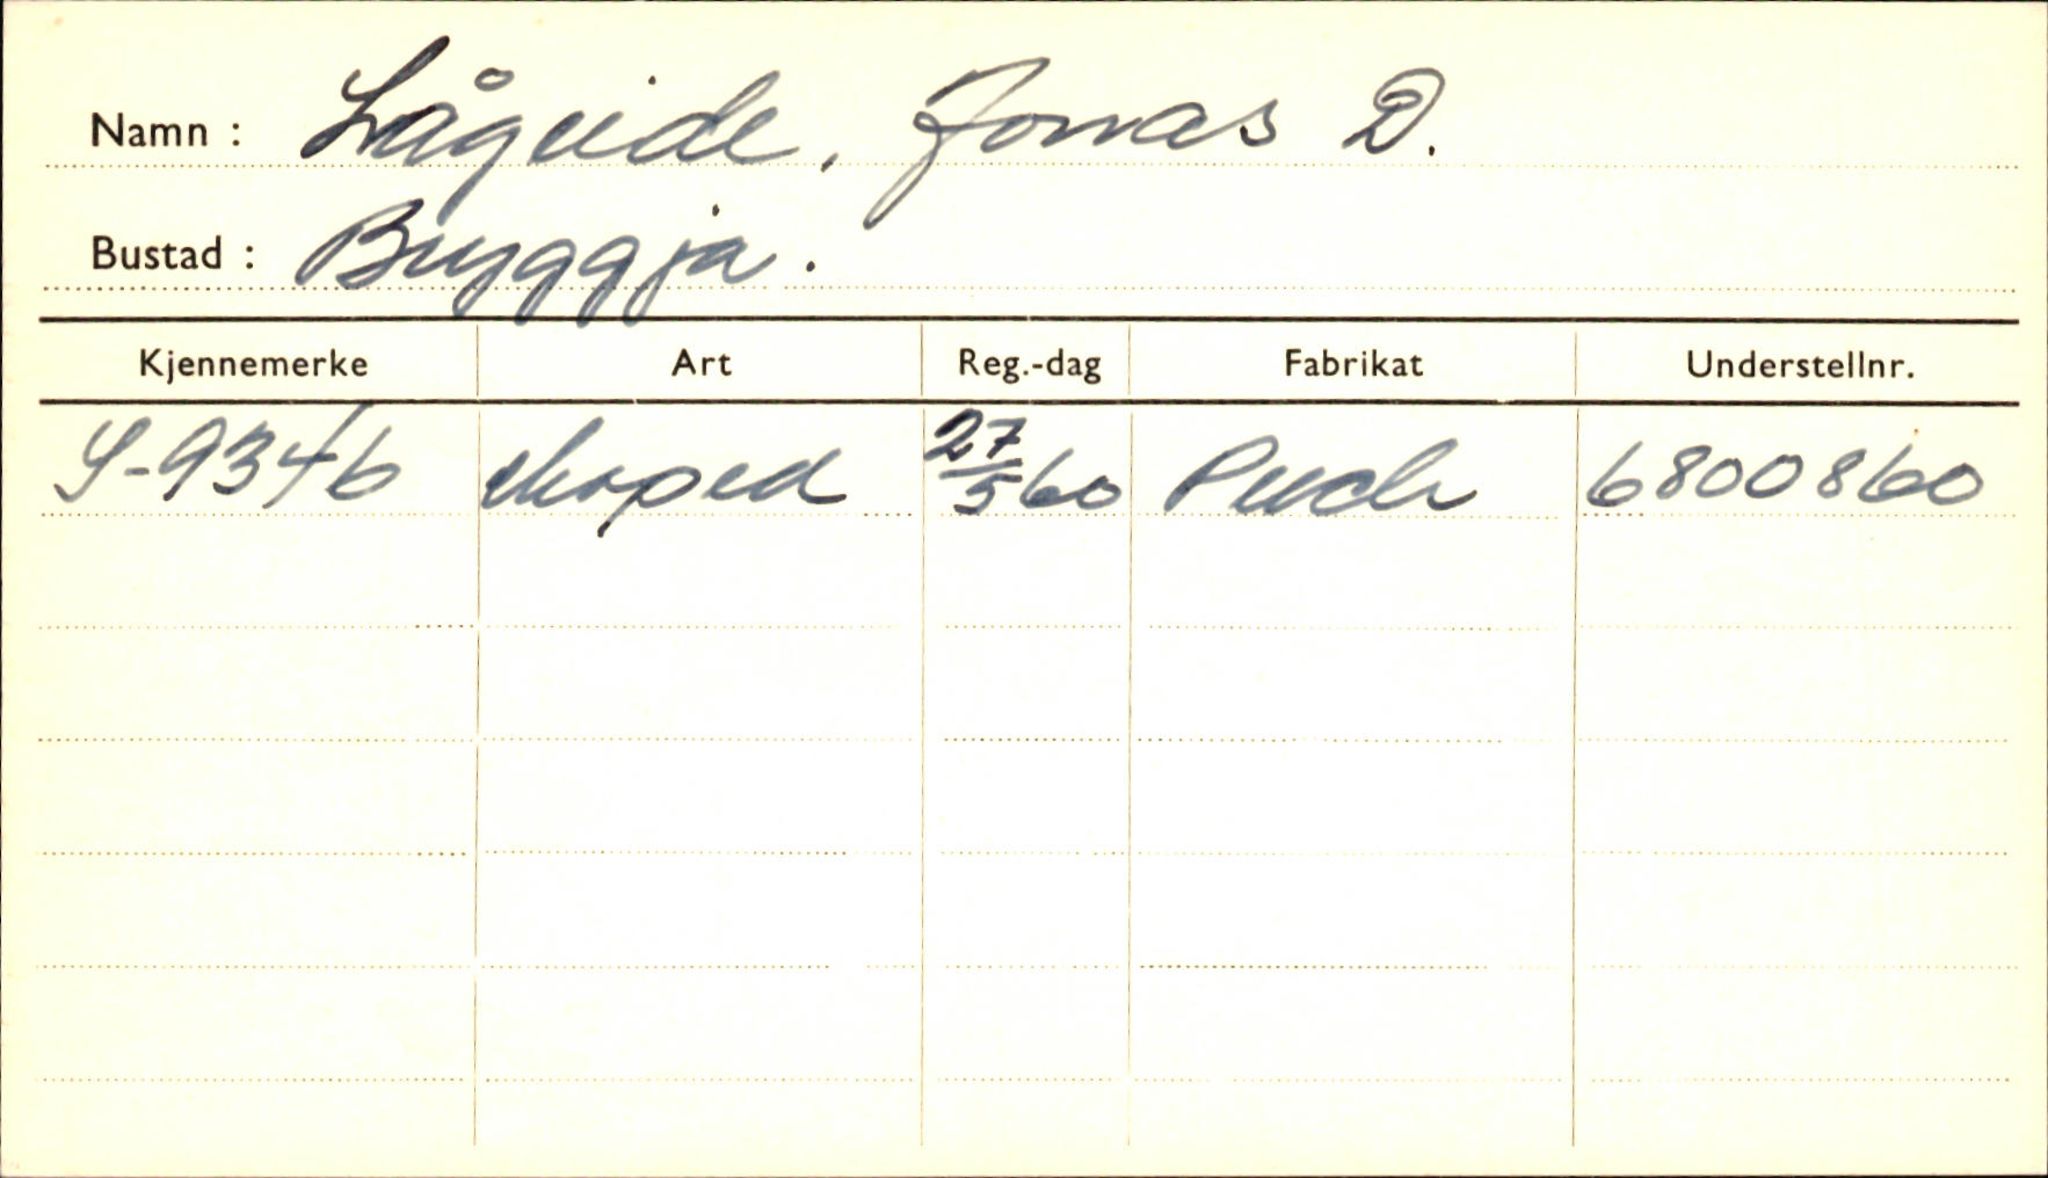 Namn : Lågeide, Jonas D.
Bustad : Bryggja.
Kjennemerke Art Reg.-dag Fabrikat Understellnr.
S-9346 Moped 27/5 60 Puch 6800860